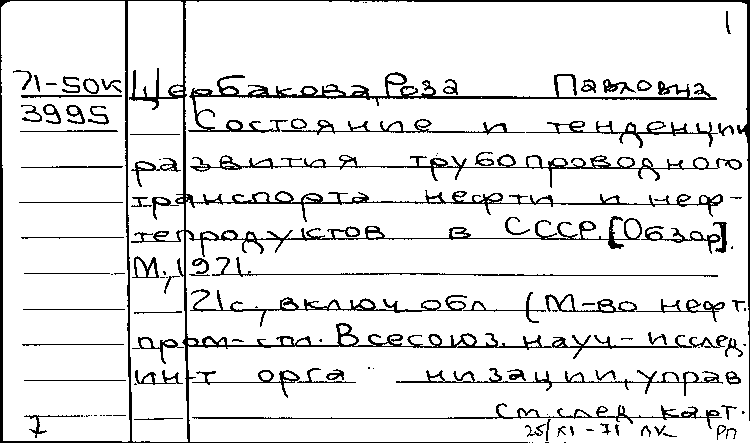 1
71-50К Щербакова, Роза Павловна
3995 Состояние и тенденции
развития трубопроводного
транспорта нефти и неф-
тепродуктов в СССР. [Обзор].
М., 1971.
21с., включ. обл. (М-во нефт.
пром-сти. Всесоюз. науч-исслед.
ин-т орга низации, управ
См. след. карт.
7 25/XI-71 ЛК РП